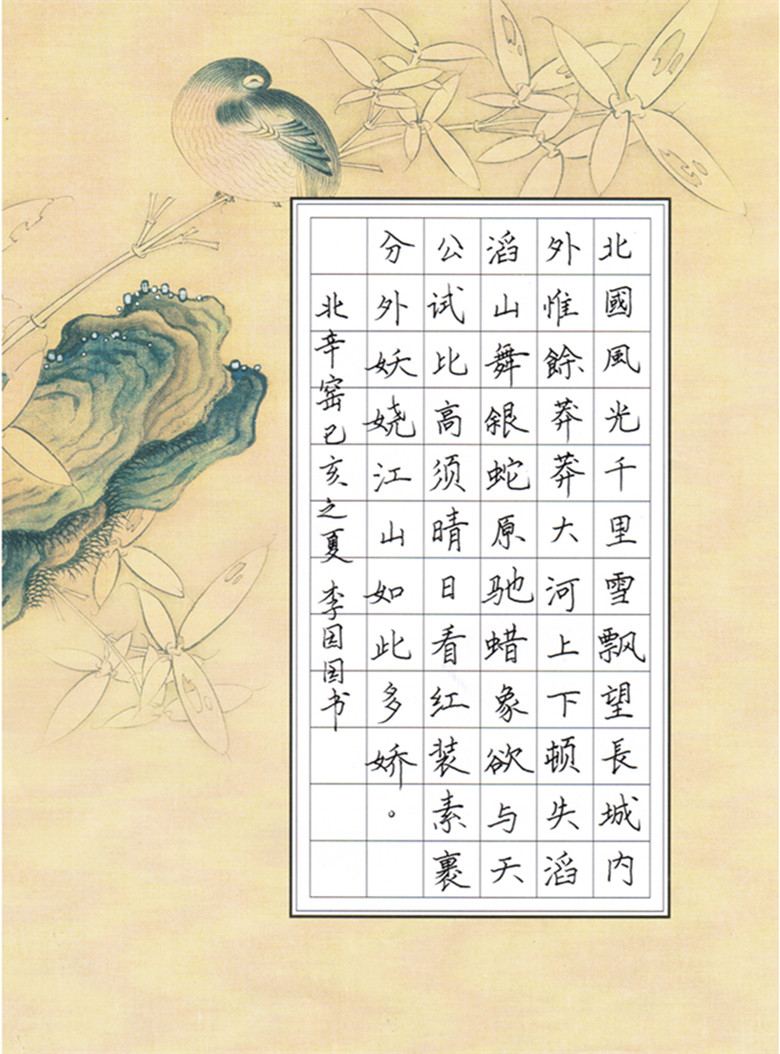 北國風光千里雪飘望長城内
外惟餘莽莽大河上下顿失滔
滔山舞银蛇原驰蜡象欲与天
公试比高须晴日看红装素裹
分外妖娆江山如此多娇。
北辛窑己亥之夏 李园园书